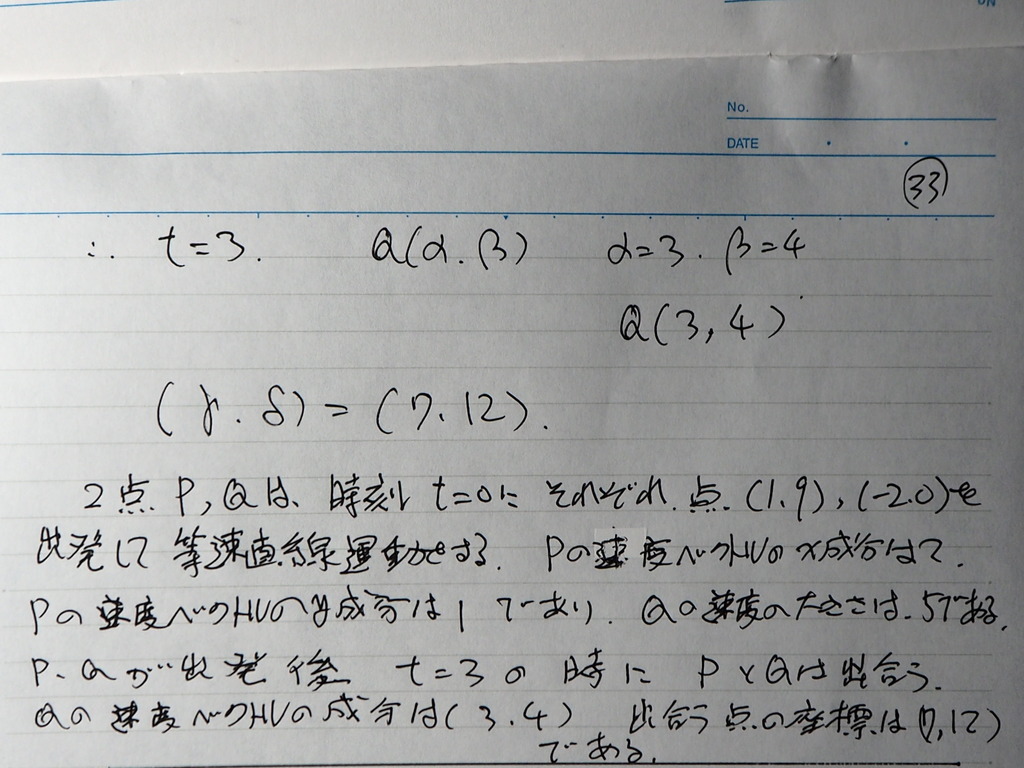 ON
No.
DATE
33
∴ t=3. Q(α.β) α=3. β=4
Q(3,4)
(γ.δ)=(7.12).
2点P,Qは、時刻t=0にそれぞれ点(1.9),(-2.0)を
出発して等速直線運動をする. Pの速度ベクトルのx成分は2.
Pの速度ベクトルのy成分は1であり. Qの速度の大きさは.5である.
P.Qが出発後 t=3の時にPとQは出合う.
Qの速度ベクトルの成分は(3.4) 出合う点の座標は(7,12)
である.